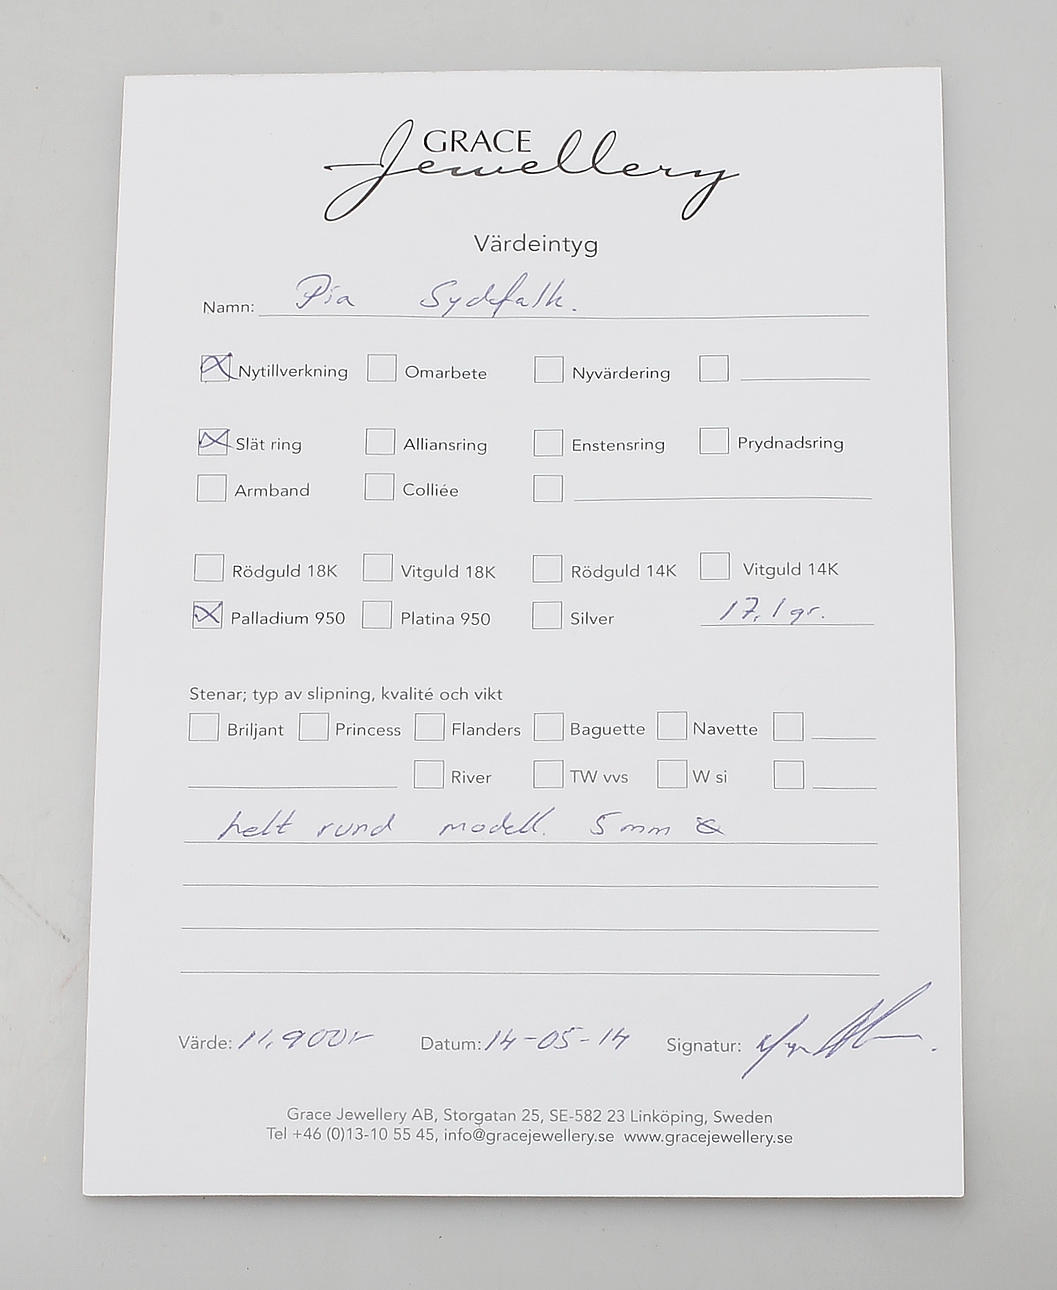 GRACE
Jewellery
Värdeintyg
Namn: Pia Sydefalk.
Nytillverkning Omarbete Nyvärdering
Slät ring Alliansring Enstensring Prydnadsring
Armband Colliée
Rödguld 18K Vitguld 18K Rödguld 14K Vitguld 14K
Palladium 950 Platina 950 Silver 17,1 gr.
Stenar; typ av slipning, kvalité och vikt
Briljant Princess Flanders Baguette Navette
River TW vvs W si
helt rund modell. 5 mm
Värde: 11,900 Datum: 14-05-14 Signatur:
Grace Jewellery AB, Storgatan 25, SE-582 23 Linköping, Sweden
Tel +46 (0)13-10 55 45, info@gracejewellery.se www.gracejewellery.se